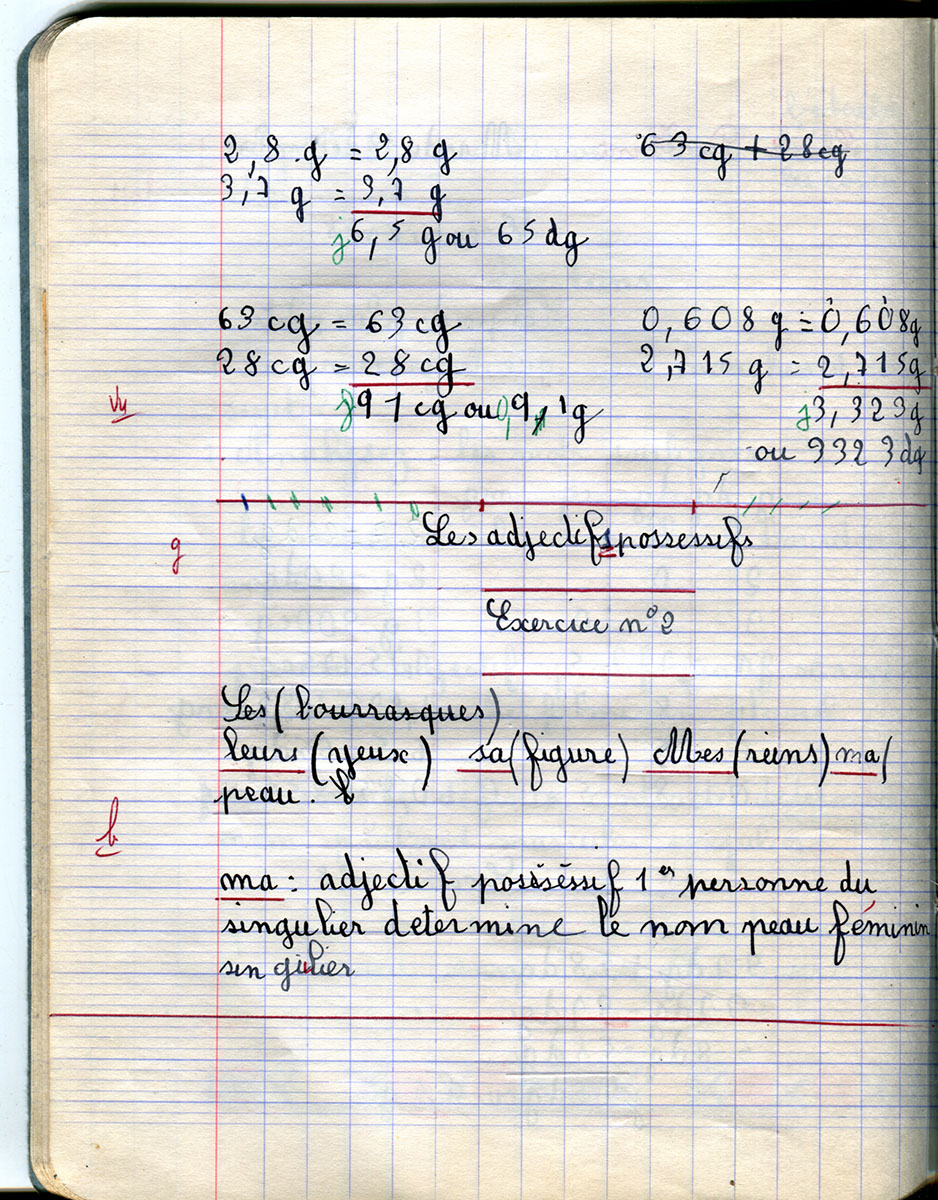 2,8 g = 2,8 g
63 cg + 28 cg
3,7 g = 3,7 g
j 6,5 g ou 65 dg
63 cg = 63 cg
28 cg = 28 cg
j 91 cg ou 0,91 g
0,608 g = 0,608 g
2,715 g = 2,715 g
j 3,323 g
ou 3323 dg
Vu
g
Les adjectifs possessifs
Exercice n° 2
Les (bourrasques)
leurs (yeux) sa (figure) Mes (reins) ma (
peau.
b
ma : adjectif posséssif 1er personne du
singulier determine le nom peau féminin
singulier